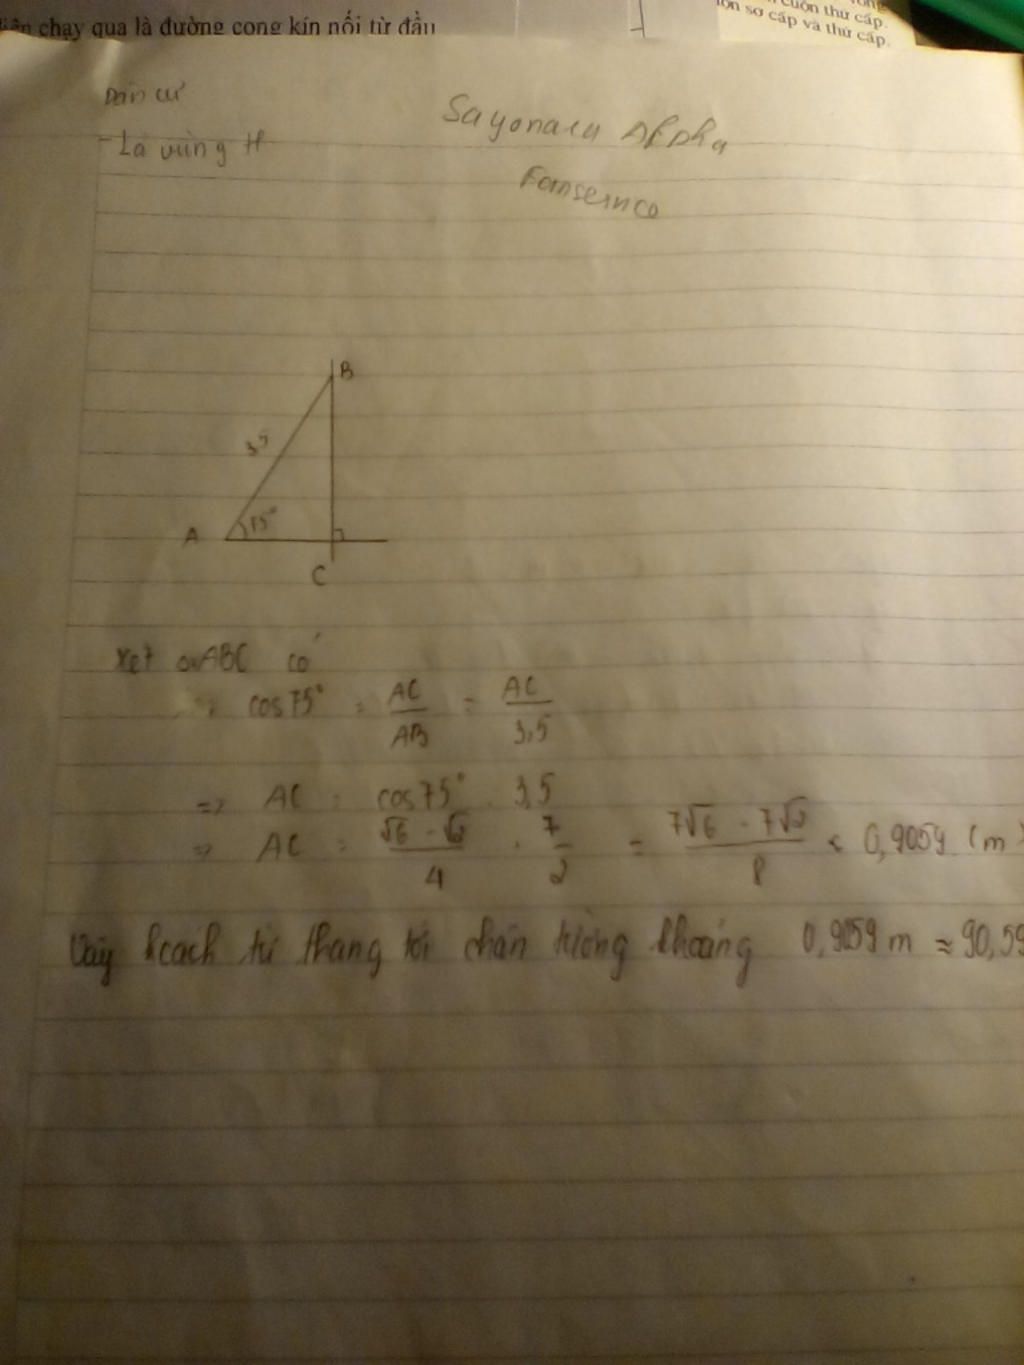 diện chạy qua là đường cong kín nối từ đầu
cuộn thứ cấp.
sơ cấp và thứ cấp.
Dân cư
- Là vùng
Sayonara Alpha
B
3,5
A
75°
C
Xét △ABC có
cos75° = AC/AB = AC/3,5
=> AC = cos75° . 3,5
=> AC = (√6 - √2)/4 . 7/2 = (7√6 - 7√2)/8 ≈ 0,9059 (m)
Vậy kcách từ thang tới chân tường khoảng 0,9059 m ≈ 90,59